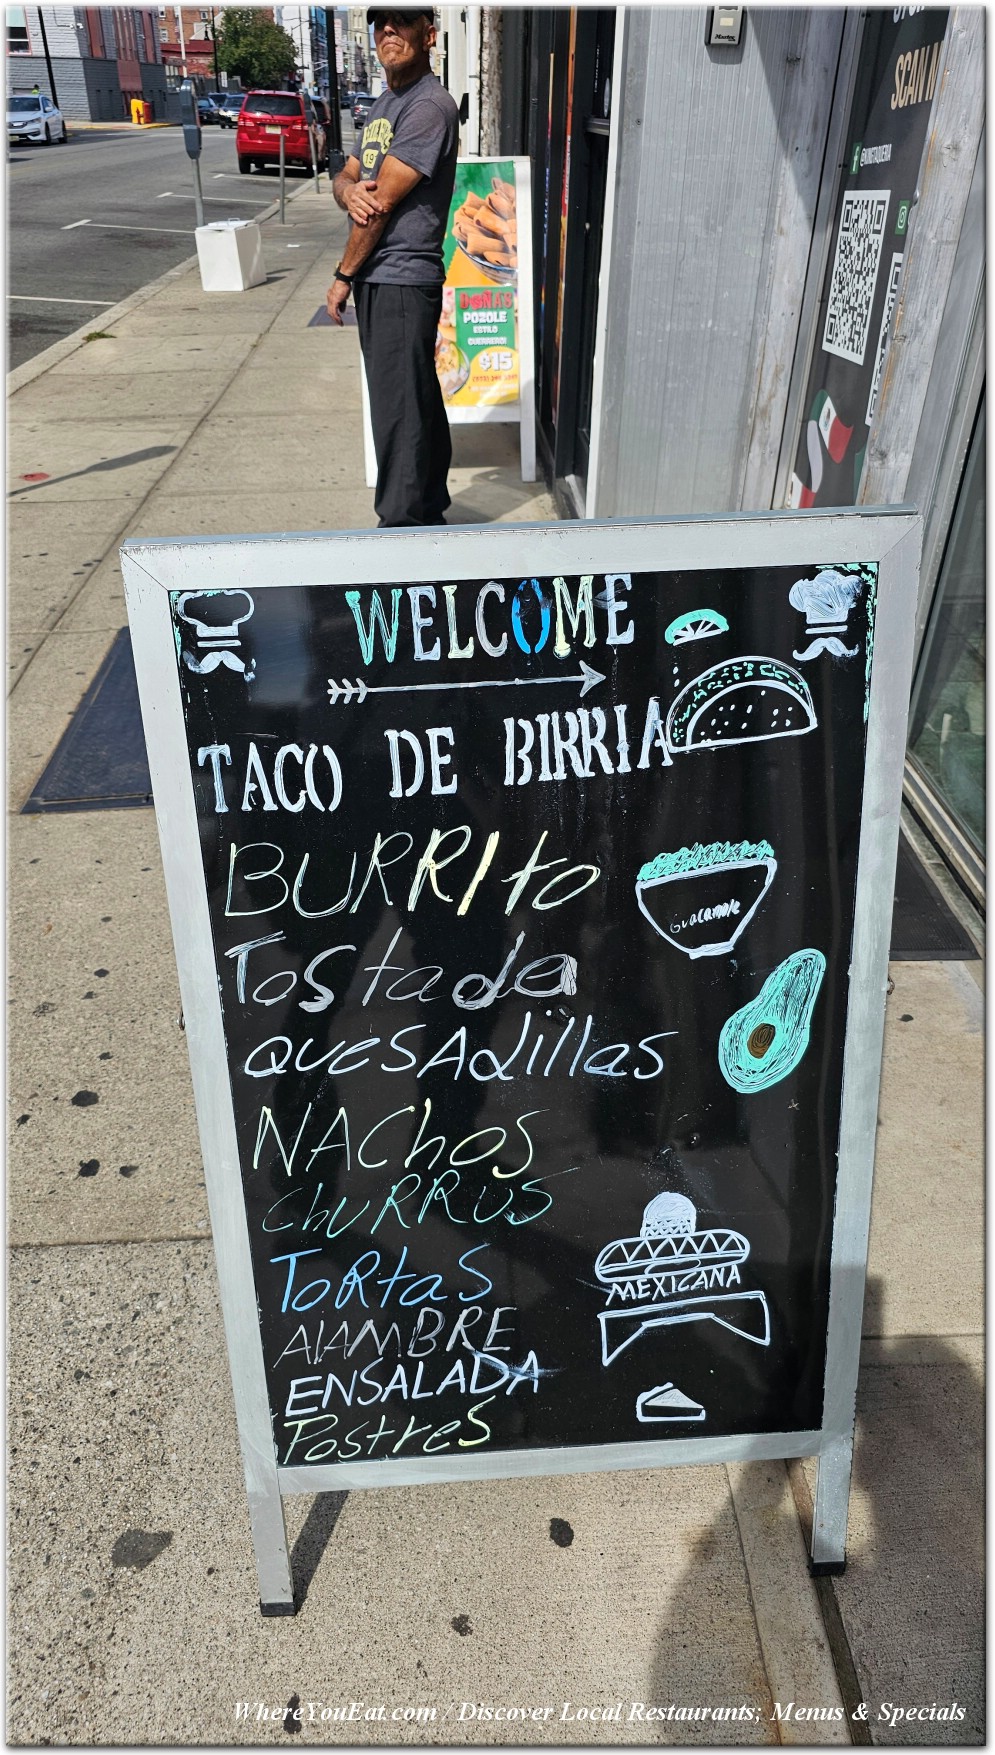 SCAN
@KINGTAQUERIA
DOÑA'S
POZOLE
ESTILO
GUERRERO!
$15
WELCOME
TACO DE BIRRIA
BURRIto
Tostada
Guacamole
QUESAdillas
NAChoS
ChURRUS
ToRtaS
MEXICANA
AlAMBRE
ENSALADA
PostreS
WhereYouEat.com / Discover Local Restaurants; Menus & Specials